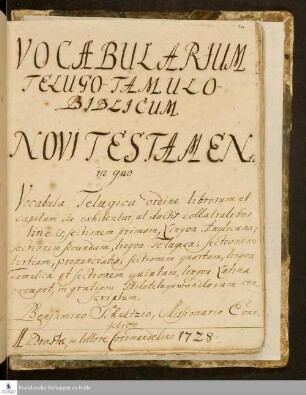 VOCABULARIUM
TELUGO-TAMULO-
BIBLICUM
NOVI TESTAMEN
in quo
Vocabula Telugica ordine librorum et
capitum ita exhibentur, ut ductis collateralibus
lineis, sectionem primam, Lingua Anglicana;
sectionem secundam, lingua Telugica; sectionem
tertiam, pronunciatio; sectionem quartam, lingua
Tamulica et sectionem quintam, lingua Latina
in gratiam
scriptum.
Benjamino Schultzio, Missionario Evan-
gelico
Madrastæ in littore Coromandelino 1728
Franckesche Stiftungen zu Halle